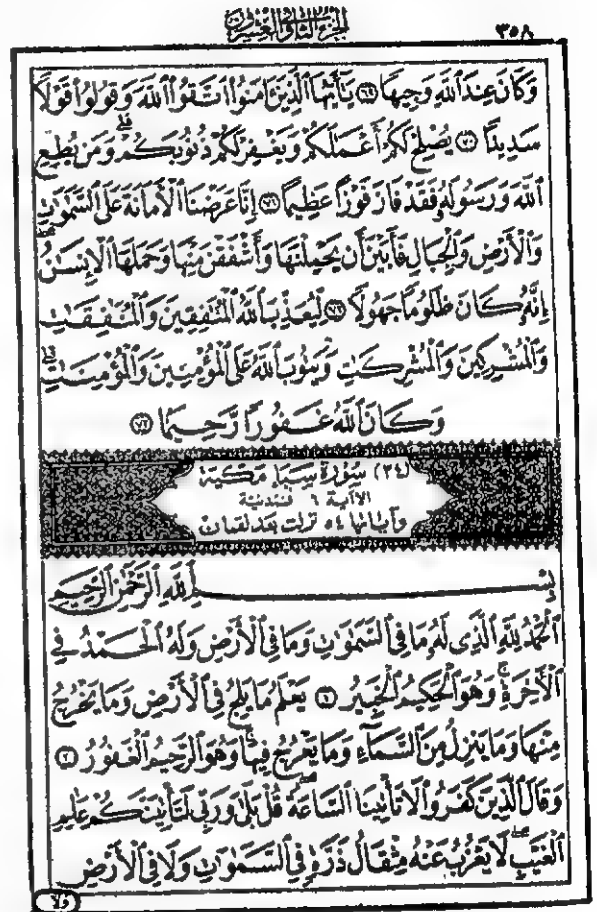 الجزء الثاني والعشرون
٣٥٨
وَكَانَ عِندَ ٱللَّهِ وَجِيهًا ۝٦٩ يَٰٓأَيُّهَا ٱلَّذِينَ ءَامَنُوا۟ ٱتَّقُوا۟ ٱللَّهَ وَقُولُوا۟ قَوْلًا
سَدِيدًا ۝٧٠ يُصْلِحْ لَكُمْ أَعْمَٰلَكُمْ وَيَغْفِرْ لَكُمْ ذُنُوبَكُمْ ۗ وَمَن يُطِعِ
ٱللَّهَ وَرَسُولَهُۥ فَقَدْ فَازَ فَوْزًا عَظِيمًا ۝٧١ إِنَّا عَرَضْنَا ٱلْأَمَانَةَ عَلَى ٱلسَّمَٰوَٰتِ
وَٱلْأَرْضِ وَٱلْجِبَالِ فَأَبَيْنَ أَن يَحْمِلْنَهَا وَأَشْفَقْنَ مِنْهَا وَحَمَلَهَا ٱلْإِنسَٰنُ ۖ
إِنَّهُۥ كَانَ ظَلُومًا جَهُولًا ۝٧٢ لِّيُعَذِّبَ ٱللَّهُ ٱلْمُنَٰفِقِينَ وَٱلْمُنَٰفِقَٰتِ
وَٱلْمُشْرِكِينَ وَٱلْمُشْرِكَٰتِ وَيَتُوبَ ٱللَّهُ عَلَى ٱلْمُؤْمِنِينَ وَٱلْمُؤْمِنَٰتِ ۗ
وَكَانَ ٱللَّهُ غَفُورًا رَّحِيمًا ۝٧٣
(٣٤) سورة سبإ مكية
إلا آية ٦ فمدنية
وآياتها ٥٤ نزلت بعد لقمان
بِسْمِ ٱللَّهِ ٱلرَّحْمَٰنِ ٱلرَّحِيمِ
ٱلْحَمْدُ لِلَّهِ ٱلَّذِى لَهُۥ مَا فِى ٱلسَّمَٰوَٰتِ وَمَا فِى ٱلْأَرْضِ وَلَهُ ٱلْحَمْدُ فِى
ٱلْءَاخِرَةِ ۚ وَهُوَ ٱلْحَكِيمُ ٱلْخَبِيرُ ۝١ يَعْلَمُ مَا يَلِجُ فِى ٱلْأَرْضِ وَمَا يَخْرُجُ
مِنْهَا وَمَا يَنزِلُ مِنَ ٱلسَّمَآءِ وَمَا يَعْرُجُ فِيهَا ۚ وَهُوَ ٱلرَّحِيمُ ٱلْغَفُورُ ۝٢
وَقَالَ ٱلَّذِينَ كَفَرُوا۟ لَا تَأْتِينَا ٱلسَّاعَةُ ۖ قُلْ بَلَىٰ وَرَبِّى لَتَأْتِيَنَّكُمْ عَٰلِمِ
ٱلْغَيْبِ ۖ لَا يَعْزُبُ عَنْهُ مِثْقَالُ ذَرَّةٍ فِى ٱلسَّمَٰوَٰتِ وَلَا فِى ٱلْأَرْضِ
ولا